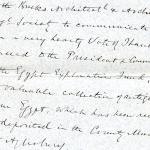 the Bucks Architectl. & Archæ
Society to communicate
a very hearty Vote of Thanks
to the President & Comm
the Egypt Exploration Fund
valuable collection of antiq
Egypt, which has been re
deposited in the County Mus
Aylesbury